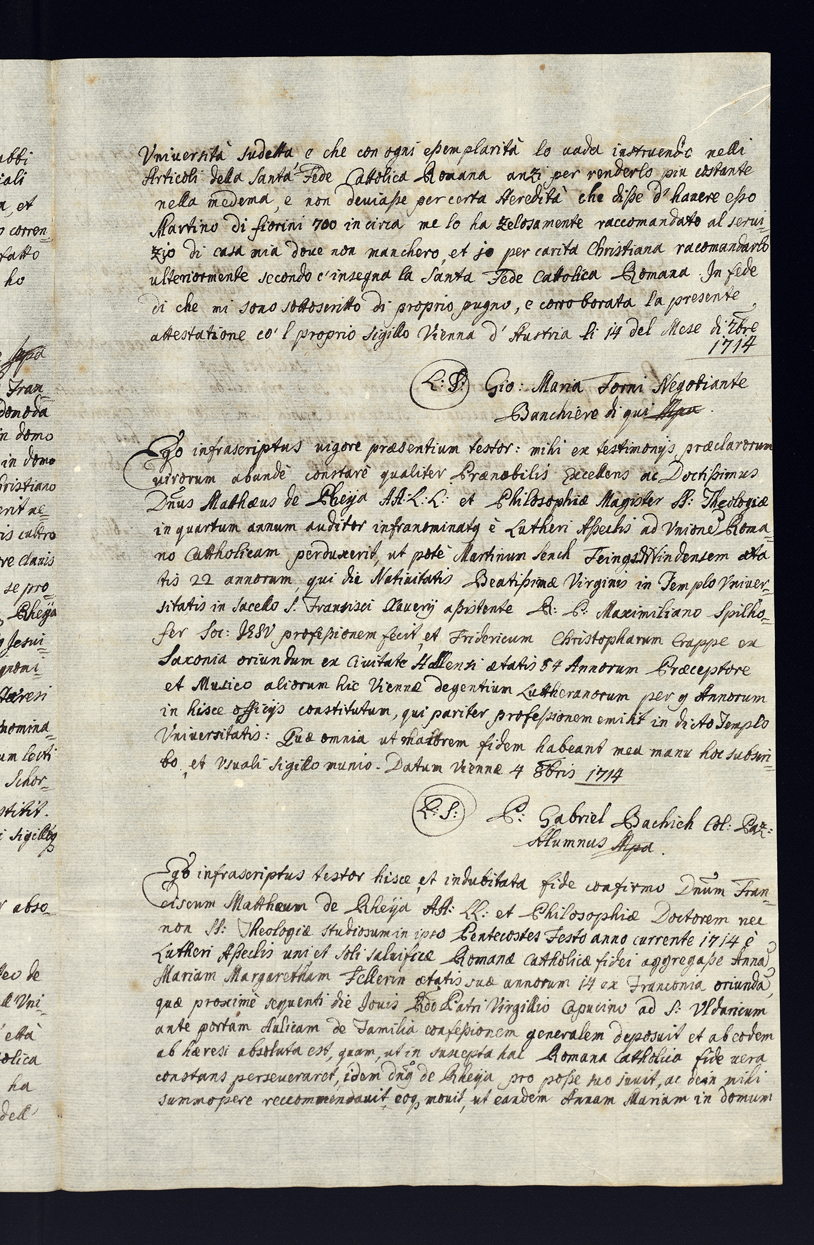 Università sudetta e che con ogni essemplarità lo vada instruendo nelli
Articoli della Santa Fede Cattolica Romana anzi per renderlo piu costante
nella medema, e non deviasse per certa Heredità che disse d'havere esso
Martino di fiorini 700 in circa me lo ha zelosamente raccomandato al servi=
zio di casa mia dove non mancherò, et jo per carita Christiana racomandarlo
ulteriormente secondo c'insegna la Santa Fede Cattolica Romana. In fede
di che mi sono sottoscritto di proprio pugno, e corroborata la presente
attestatione co'l proprio sigillo Vienna d'Austria li 14 del Mese di Xbre
1714
L: S: Gio: Maria Forni Negotiante
Banchiere di qui
Ego infrascriptus vigore præsentium testor: mihi ex testimonijs præclarorum
virorum abundè constare qualiter Prænobilis Excellens ac Doctissimus
Dnus Mathæus de Rheija AA. L.L: et Philosophiæ Magister SS: Theologiæ
in quartum annum auditor infranominatq è Lutheri Asseclis ad Unione Roma=
no Catthollicam perduxerit, ut potè Martinum Senck Feingswindensem æta
tis 22 annorum qui die Nativitatis Beatissimæ Virginis in Templo Univer=
sitatis in Sacello S. Francisci Xaverij assistente R: P: Maximiliano Spilho=
fer Soc: JESU professionem fecit, et Fridericum Christophorum Crappe ex
Saxonia oriundum ex Civitate Hallensi ætatis 84 Annorum Præceptore
et Musico aliorum hic Viennæ degentium Lutheranorum per 9 Annorum
in hisce officijs constitutum, qui pariter professionem emisit in dicto Templo
Universitatis: Quæ omnia ut maiorem fidem habeant mea manu hoc subscri=
bo, et Usuali Sigillo munio. Datum Viennæ 4 8bris 1714
L: S: P: Gabriel Bachich Col: Paz:
Alumnus Mpa.
Ego infrascriptus testor hisce et indubitata fide confirmo Dnum Fran=
ciscum Matthæum de Rheija AA: LL: et Philosophiæ Doctorem nec
non SS: Theologiæ studiosum in ipso Pentecostes Festo anno currente 1714 è
Lutheri Asseclis uni et soli salvificæ Romanæ Catholicæ fidei aggregasse Anna
Mariam Margaretham Fellerin ætatis suæ annorum 14 ex Franconia oriunda,
quæ proximè sequenti die Jovis Rdo Patri Virgillio Capucino ad S: Uldaricum
ante portam Aulicam de Familia confessionem generalem deposuit et ab eodem
ab hæresi absoluta est, quam, ut in suscepta hac Romana Catholica fide vera
constans perseveraret, idem dnq de Rheija pro posse suo juvit, ac dein mihi
summopere reccommendavit, eoq movit, ut eandem Annam Mariam in domum